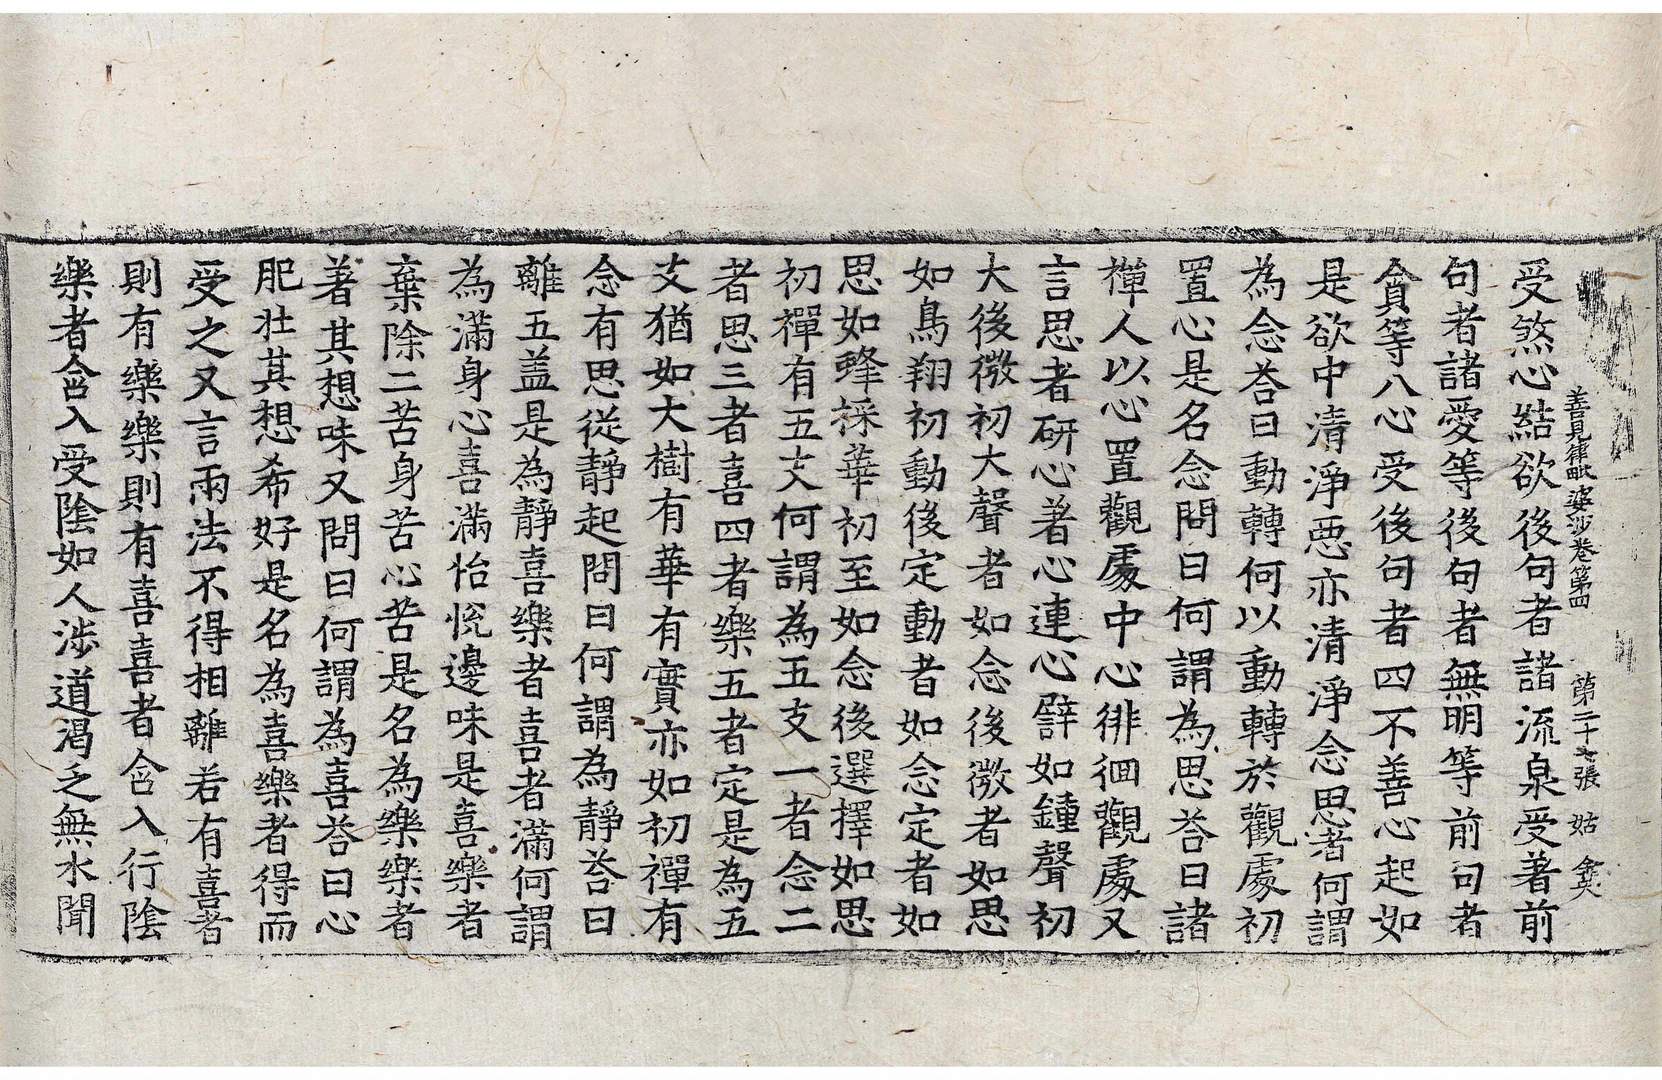 善見律毗婆沙卷第四 第二十七張 姑
受煞心結欲後句者諸流泉受著前
句者諸愛等後句者無明等前句者
貪等八心受後句者四不善心起如
是欲中清淨惡亦清淨念思者何謂
為念荅曰動轉何以動轉於觀處初
置心是名念問曰何謂為思荅曰諸
禪人以心置觀處中心徘徊觀處又
言思者研心著心連心譬如鍾聲初
大後微初大聲者如念後微者如思
如鳥翔初動後定動者如念定者如
思如蜂採華初至如念後選擇如思
初禪有五支何謂為五支一者念二
者思三者喜四者樂五者定是為五
支猶如大樹有華有實亦如初禪有
念有思從靜起問曰何謂為靜荅曰
離五盖是為靜喜樂者喜者滿何謂
為滿身心喜滿怡悅邊味是喜樂者
棄除二苦身苦心苦是名為樂樂者
著其想味又問曰何謂為喜荅曰心
肥壯其想希好是名為喜樂者得而
受之又言兩法不得相離若有喜者
則有樂樂則有喜喜者含入行陰
樂者含入受陰如人涉道渴乏無水聞